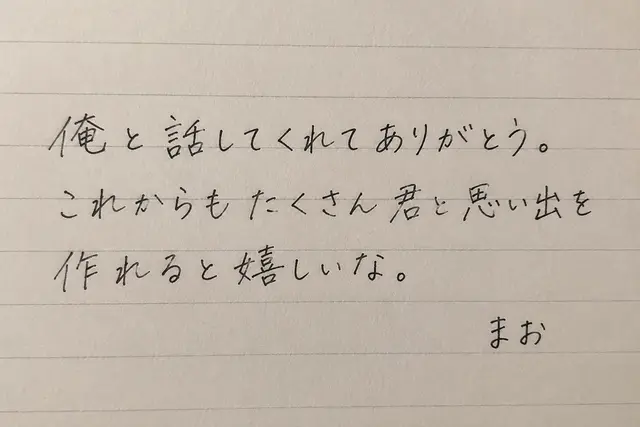 俺と話してくれてありがとう。
これからもたくさん君と思い出を
作れると嬉しいな。
まお